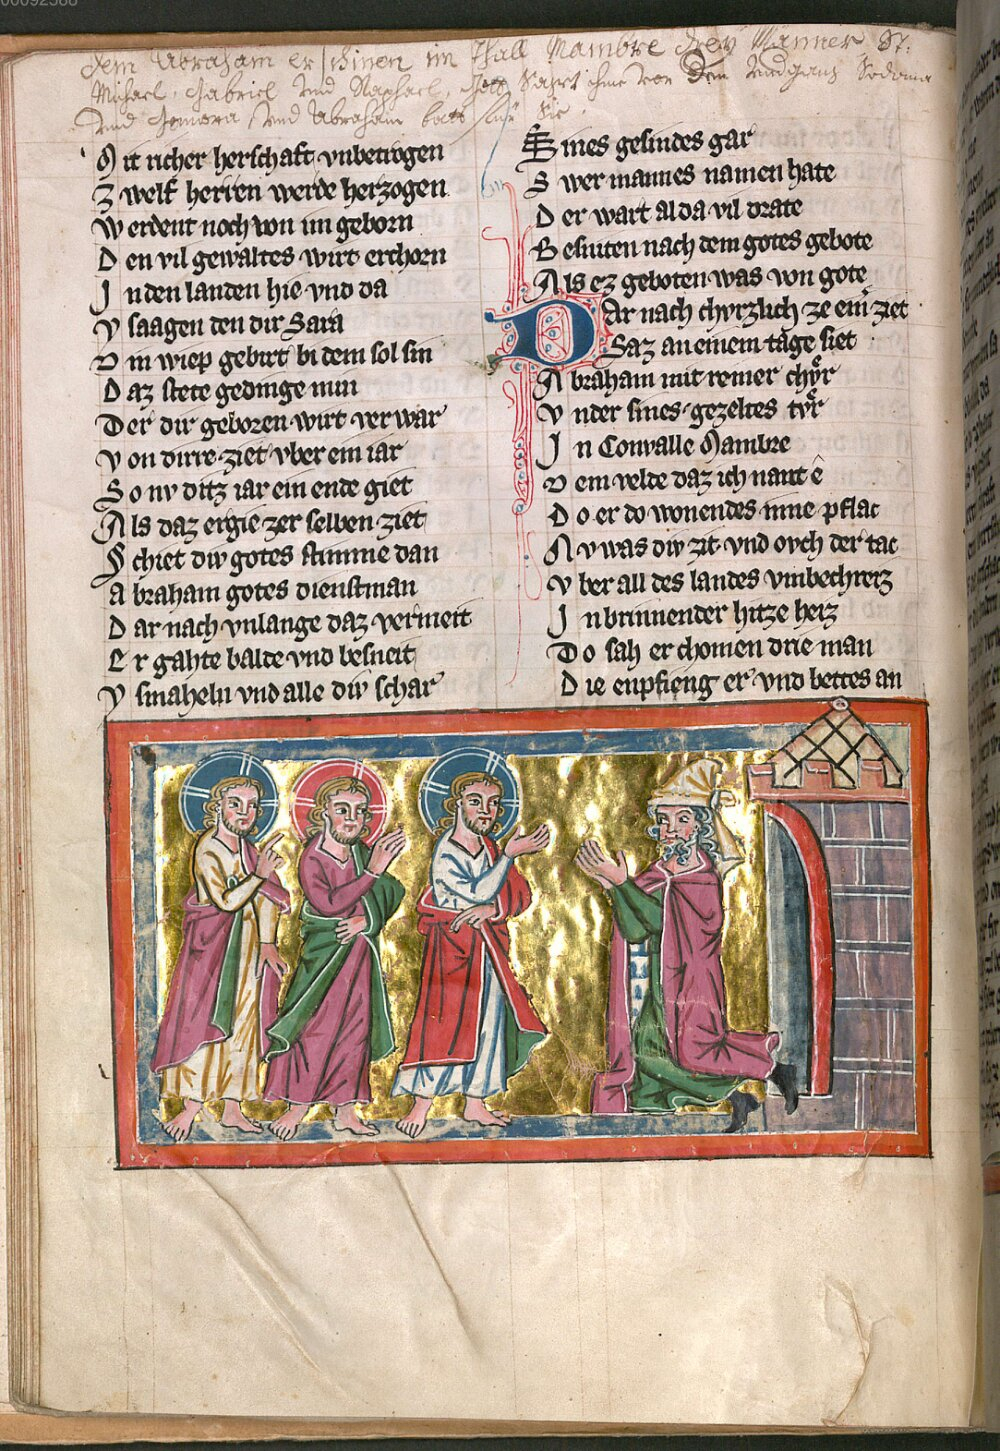 00092586
Dem Abraham erschinen im Thall Mambre drey Männer St:
Michael, Gabriel und Raphael, Gott Sagt ihme vor Dem Undgang Sodoma
und Gomora und Abraham batt für Sie
Mit richer herschaft vnbetrogen
Zwelf herren werde herzogen
Werdent noch von im geborn
Den vil gewaltes wirt erchorn
In den landen hie vnd da
Vsaagen den dir Sara
Din wiep gebirt bi dem sol sin
Daz stete gedinge min
Der dir geborzen wirt ver war
Von dirre ziet vber ein iar
So nv ditz iar ein ende giet
Als daz ergie zer selben ziet
Schiet div gotes stimme dan
Abraham gotes dienstman
Dar nach vnlange daz vermeit
Er gahte balde vnd besneit
Ysmaheln vnd alle div schar
Sines gesindes gar
Swer mannes namen hate
Der wart al da vil drate
Besniten nach dem gotes gebote
Als ez geboten was von gote
Dar nach chvrzlich ze einer ziet
Saz an einem tage siet
Abraham mit reiner chvͦr
Vnder sines gezeltes tvͦr
In Convalle Mambre
Dem velde daz ich nant ê
Do er do wonendes inne pflac
Nv was div zit vnd ovch der tac
Vber all des landes vmbechreiz
In brinnender hitze heiz
Do sah er chomen drie man
Die enpfieng er vnd bettes an